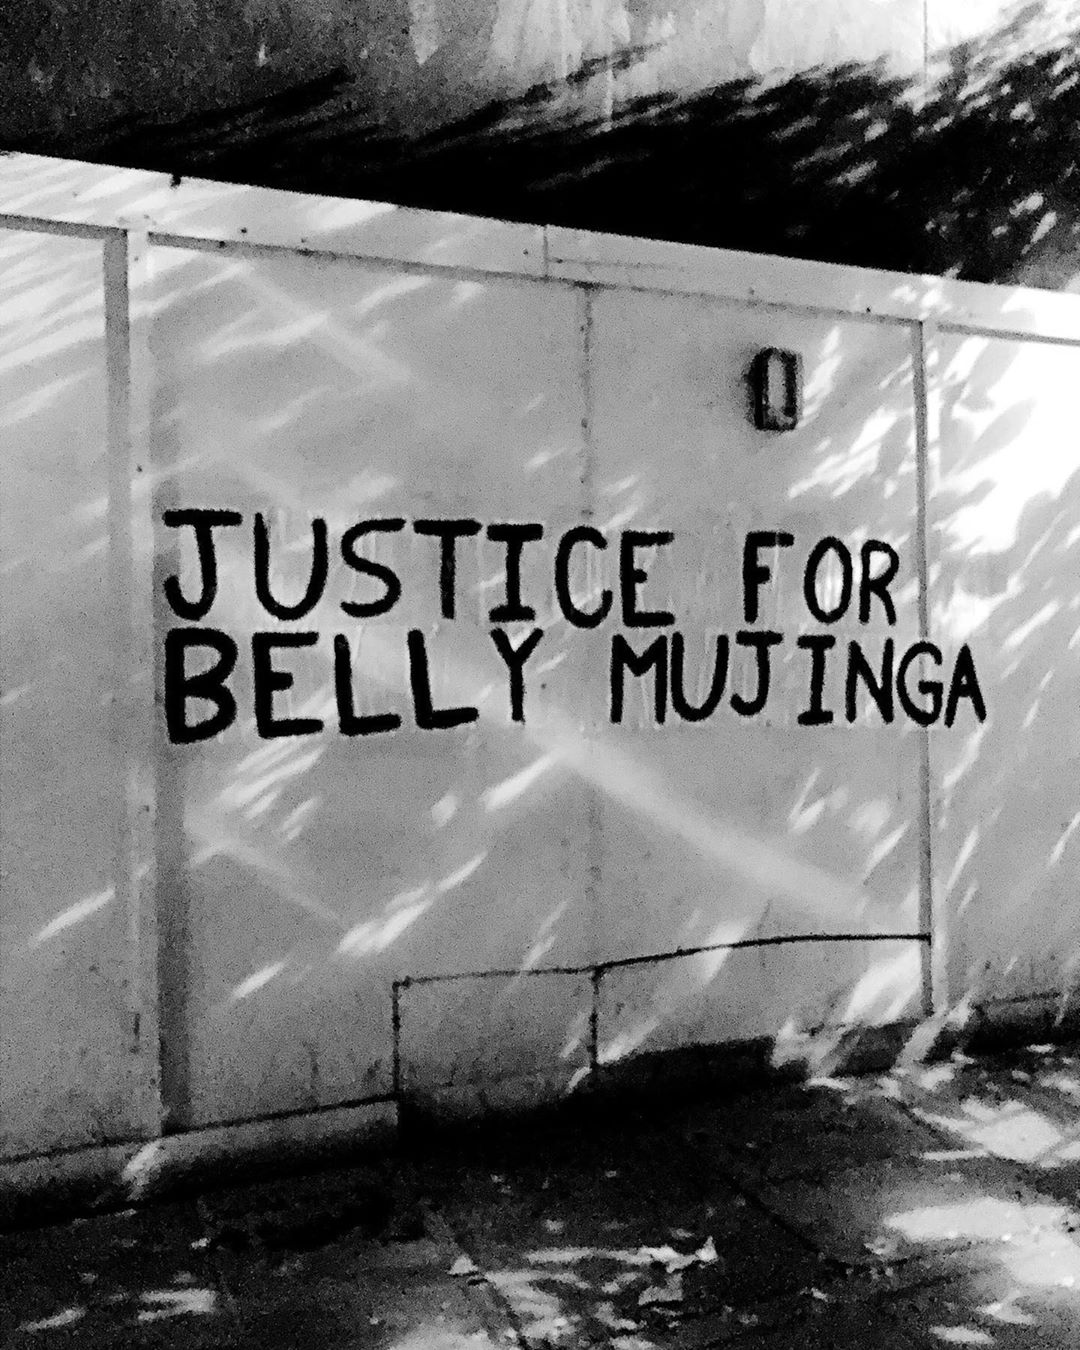 JUSTICE FOR
BELLY MUJINGA